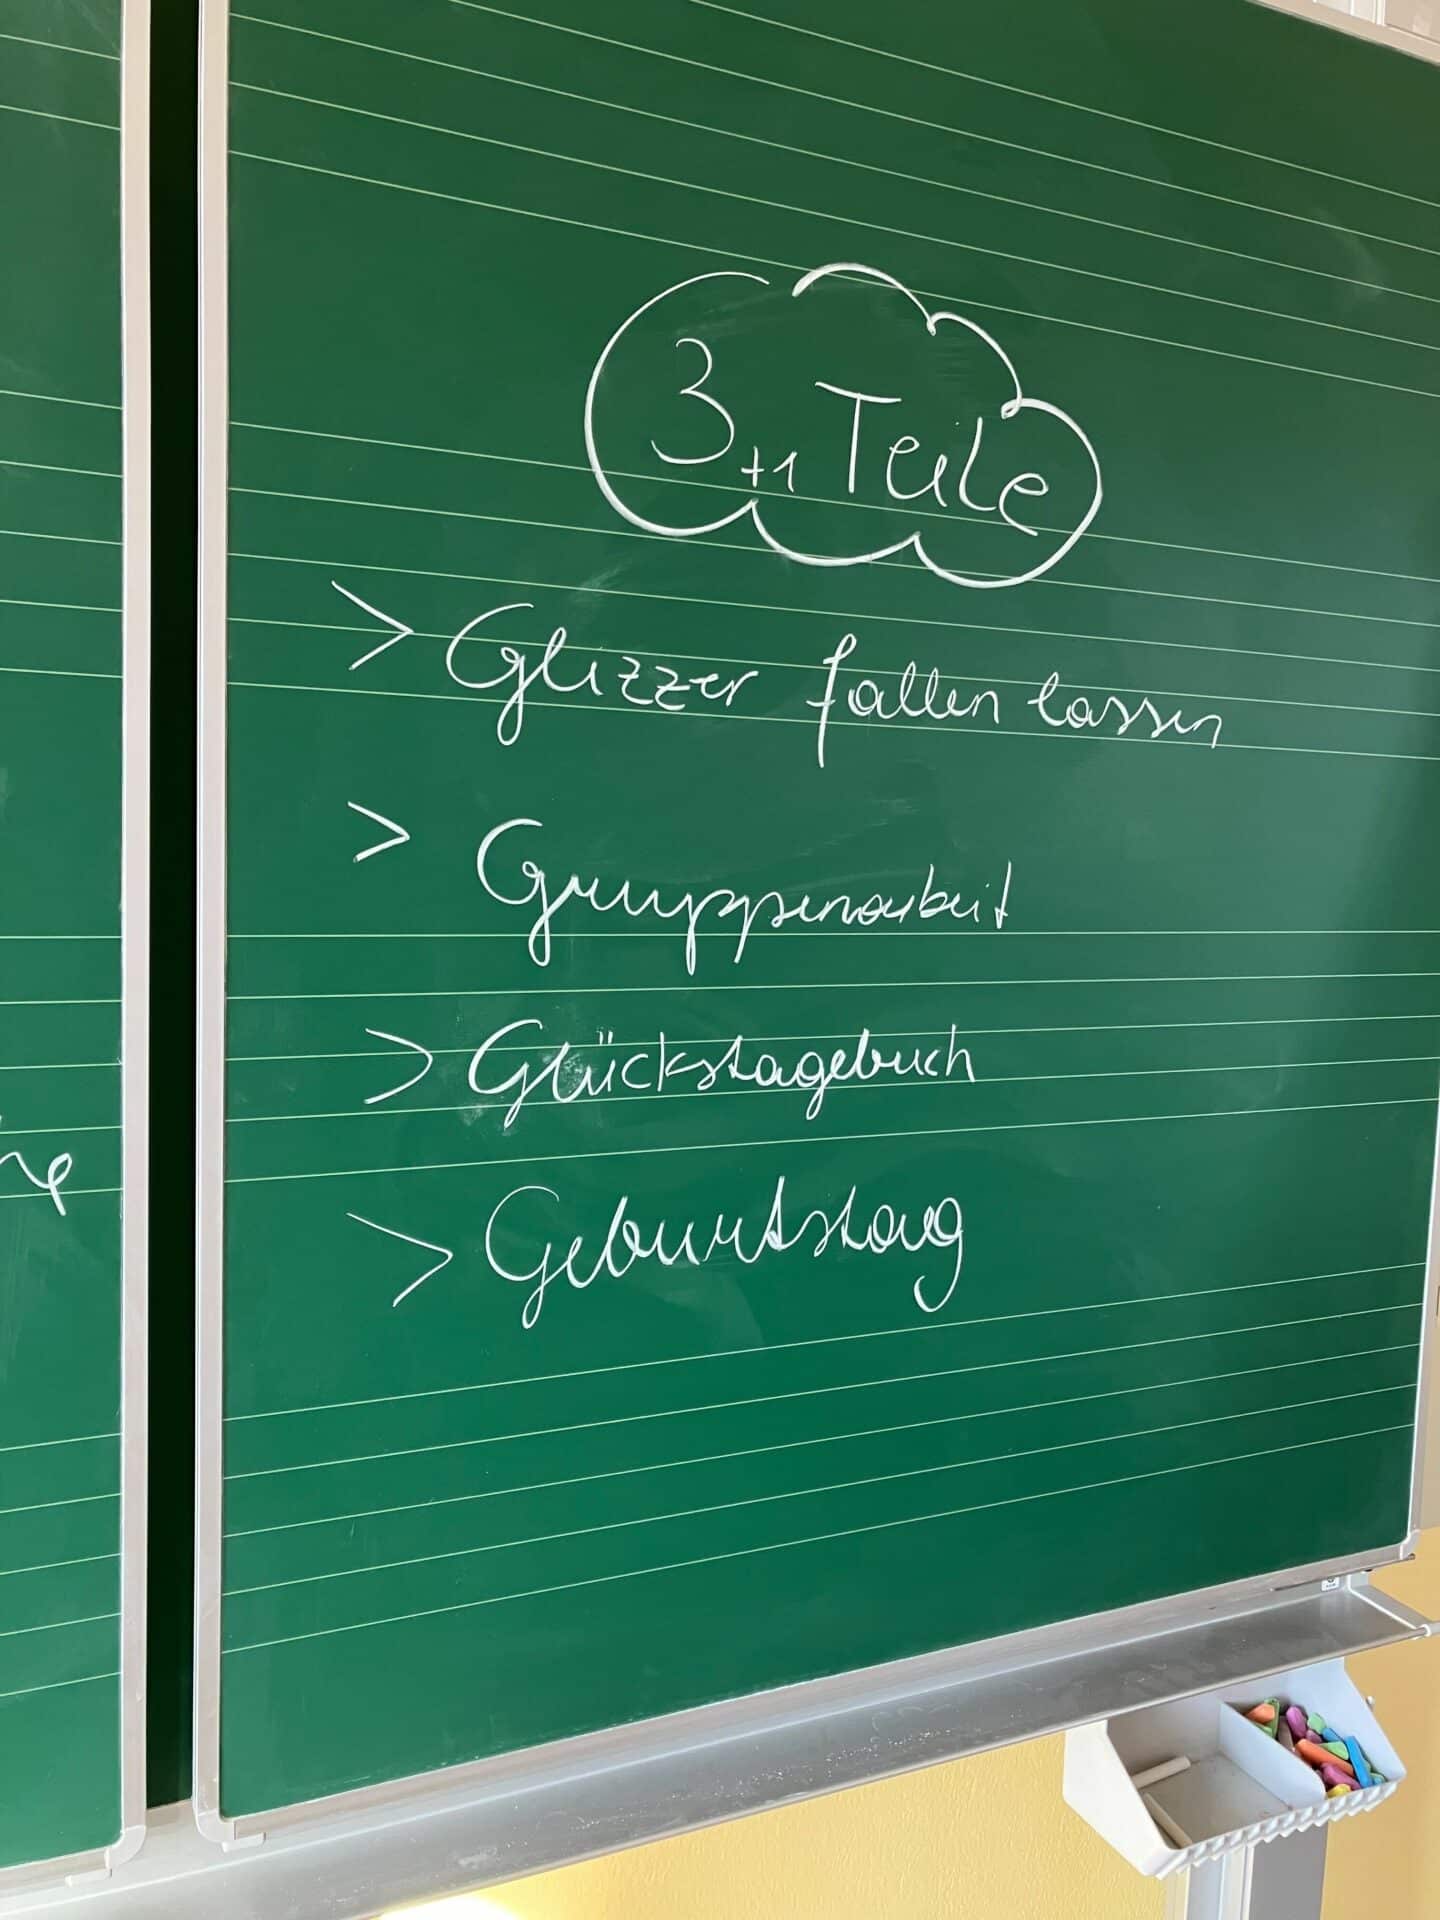 3+1 Teile
> Glizzer fallen lassen
> Gruppenarbeit
> Glückstagebuch
> Geburtstag